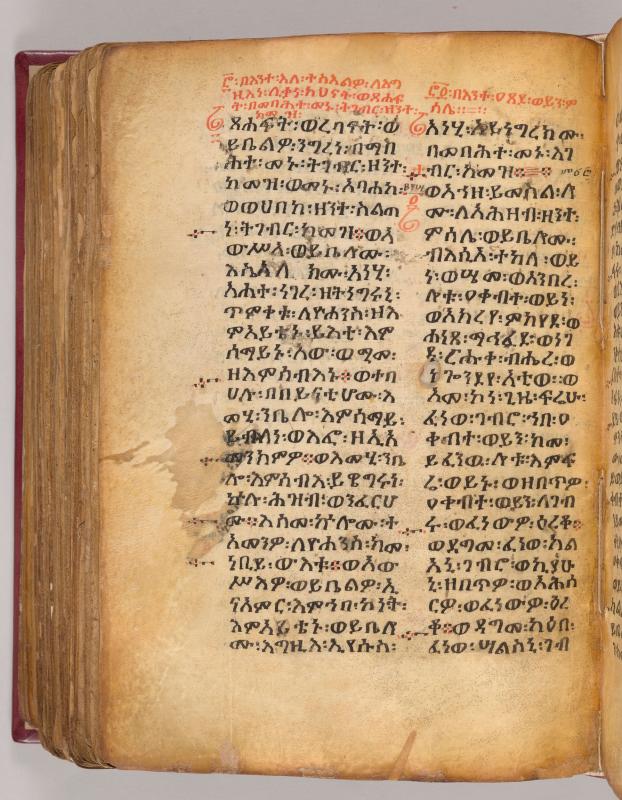 በእንተ፡እለ፡ተስእልዎ፡ለእግ
ዚእነ፡ሊቃነ፡ካህናት፡ወጸሐፍ
ት፡በመባሕተ፡መኑ፡ትገብር፡ዘንተ
ከመዝ፡
ጸሐፍት፡ወረበናት፡ወ
ይቤልዎ፡ንግረነ፡በማብ
ሕተ፡መኑ፡ትገብር፡ዘንተ፡
ከመዝ፡ወመኑ፡አባሐከ፡
ወወሀበከ፡ዘንተ፡ስልጣ
ነ፡ትገብር፡ከመዝ፨ወአ
ውሥአ፡ወይቤሎሙ፡
እሴአል ክሙ፡አነሂ፡
አሐተ፡ነገረ፡ዘትነግሩኒ፡
ጥምቀቱ፡ለዮሐንስ፡ዘእ
ምአይቴኑ፡ይእቲ፡እም
ሰማይኑ፡አው፡ወሚመ፡
ዘእምሰብእኑ፨ወተባ
ሀሉ፡በበይናቲሆሙ፡እ
መሂ፡ንቤሎ፡እምሰማይ፡
ይብለነ፡ወእፎ፡ዘኢአ
መንክምዎ፨ወእመሂ፡ንቤ
ሎ፡እምሰብእ፡ይዌግሩነ፡
ኵሉ፡ሕዝብ፡ወንፈርሆ
ሙ፨እስመ፡ኵሎሙ፡ተ
አመንዎ፡ለዮሐንስ፡ከመ፡
ነቢይ፡ውእቱ፨ወአው
ሥእዎ፡ወይቤልዎ፡ኢ
ናአምር፡እምኀበ፡ኮነት፡
እምአይቴኑ፡ወይቤሎ
ሙ፡እግዚእ፡ኢየሱስ፡
በእንተ፡ዐጸደ፡ወይን፡ም
ሳሌ፡
አነሂ፡ኢይነግረክሙ፡
በመባሕተ፡መኑ፡እገ
ብር፡ከመዝ፡
ወአኀዘ፡ይመስል፡ሎ
ሙ፡ለአሕዛብ፡ዘንተ፡
ምሳሌ፡ወይቤሎሙ፡
ብእሲ፡ተከለ፡ወይ
ነ፡ወሤመ፡ወአንበረ፡
ሎቱ፡ዐቀብተ፡ወይን፡
ወአክረየ፡ምክያደ፡ወ
ሐነጸ፡ማኅፈደ፡ወነገ
ደ፡ርሑቀ፡ብሔረ፡ወ
ነጐንደየ፡አቲወ፡፡ወ
አመ፡ኮነ፡ጊዜ፡ፍሬሁ፡
ፈነወ፡ገብሮ፡ኀበ፡ዐ
ቀብተ፡ወይን፡ከመ፡
ይፈንዉ፡ሎቱ፡እምፍ
ሬ፡ወይኑ፡ወዘበጥዎ፡
ዐቀብተ፡ወይን፡ለገብ
ሩ፡ወፈነውዎ፡ዕራቆ፨
ወደገመ፡ፈነወ፡ካል
አኒ፡ገብሮ፡ወኪያሁ
ኒ፡ዘበጥዎ፡ወአሕሰ
ርዎ፡ወፈነውዎ፡ዕራ
ቆ፨ወዳግመ፡ካዕበ፡
ፈነወ፡ሣልስኒ፡ገብ